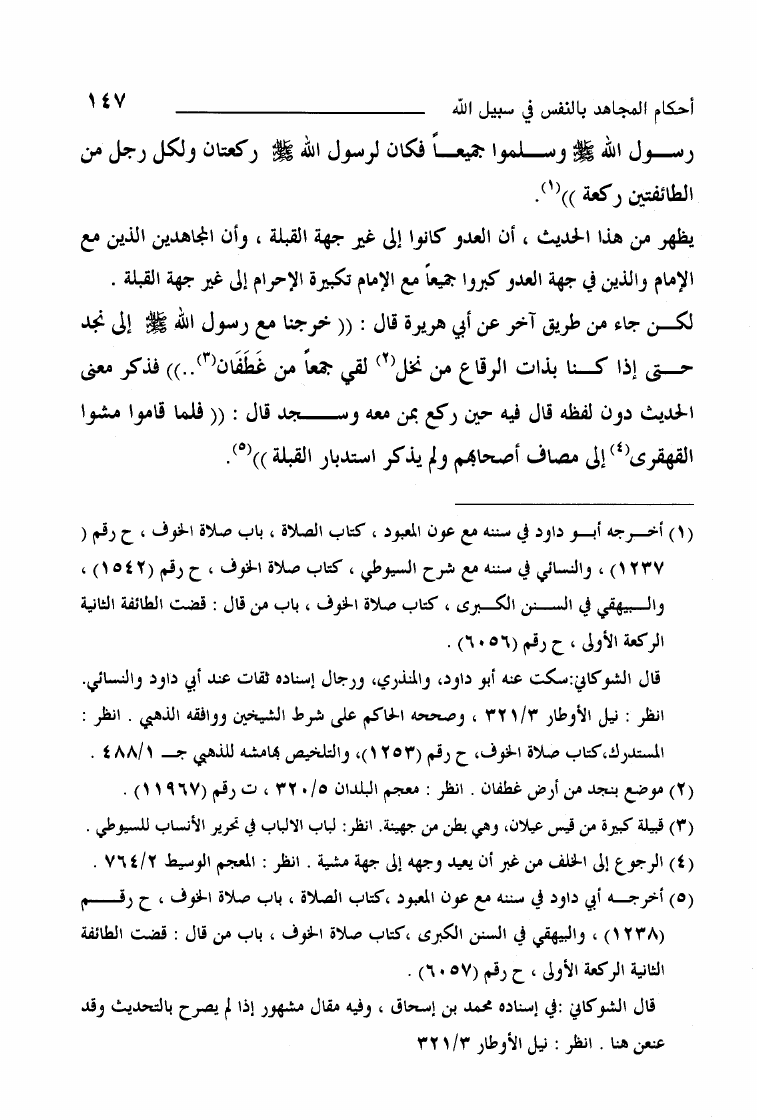 أحكام المجاهد بالنفس في سبيل الله ١٤٧
رســول الله ﷺ وســلموا جميعــاً فكان لرسول الله ﷺ ركعتان ولكل رجل من
الطائفتين ركعة ))(١).
يظهر من هذا الحديث ، أن العدو كانوا إلى غير جهة القبلة ، وأن المجاهدين الذين مع
الإمام والذين في جهة العدو كبروا جميعاً مع الإمام تكبيرة الإحرام إلى غير جهة القبلة .
لكــن جاء من طريق آخر عن أبي هريرة قال : (( خرجنا مع رسول الله ﷺ إلى نجد
حــتى إذا كــنا بذات الرقاع من نخل(٢) لقي جمعاً من غَطَفَان(٣)..)) فذكر معنى
الحديث دون لفظه قال فيه حين ركع بمن معه وســـجد قال : (( فلما قاموا مشوا
القهقرى(٤) إلى مصاف أصحابهم ولم يذكر استدبار القبلة ))(٥).
(١) أخــرجه أبــو داود في سننه مع عون المعبود ، كتاب الصلاة ، باب صلاة الخوف ، ح رقم (
١٢٣٧) ، والنسائي في سننه مع شرح السيوطي ، كتاب صلاة الخوف ، ح رقم (١٥٤٢) ،
والــبيهقي في الســنن الكــبرى ، كتاب صلاة الخوف ، باب من قال : قضت الطائفة الثانية
الركعة الأولى ، ح رقم (٦٠٥٦) .
قال الشوكاني:سكت عنه أبو داود، والمنذري، ورجال إسناده ثقات عند أبي داود والنسائي.
انظر : نيل الأوطار ٣٢١/٣ ، وصححه الحاكم على شرط الشيخين ووافقه الذهبي . انظر :
المستدرك،كتاب صلاة الخوف، ح رقم (١٢٥٣)، والتلخيص بهامشه للذهبي جــ ٤٨٨/١ .
(٢) موضع بنجد من أرض غطفان . انظر : معجم البلدان ٣٢٠/٥ ، ت رقم (١١٩٦٧) .
(٣) قبيلة كبيرة من قيس عيلان، وهي بطن من جهينة. انظر: لباب الالباب في تحرير الأنساب للسيوطي .
(٤) الرجوع إلى الخلف من غير أن يعيد وجهه إلى جهة مشية . انظر : المعجم الوسيط ٧٦٤/٢ .
(٥) أخرجــه أبي داود في سننه مع عون المعبود ،كتاب الصلاة ، باب صلاة الخوف ، ح رقــم
(١٢٣٨) ، والبيهقي في السنن الكبرى ،كتاب صلاة الخوف ، باب من قال : قضت الطائفة
الثانية الركعة الأولى ، ح رقم (٦٠٥٧) .
قال الشوكاني :في إسناده محمد بن إسحاق ، وفيه مقال مشهور إذا لم يصرح بالتحديث وقد
عنعن هنا . انظر : نيل الأوطار ٣٢١/٣